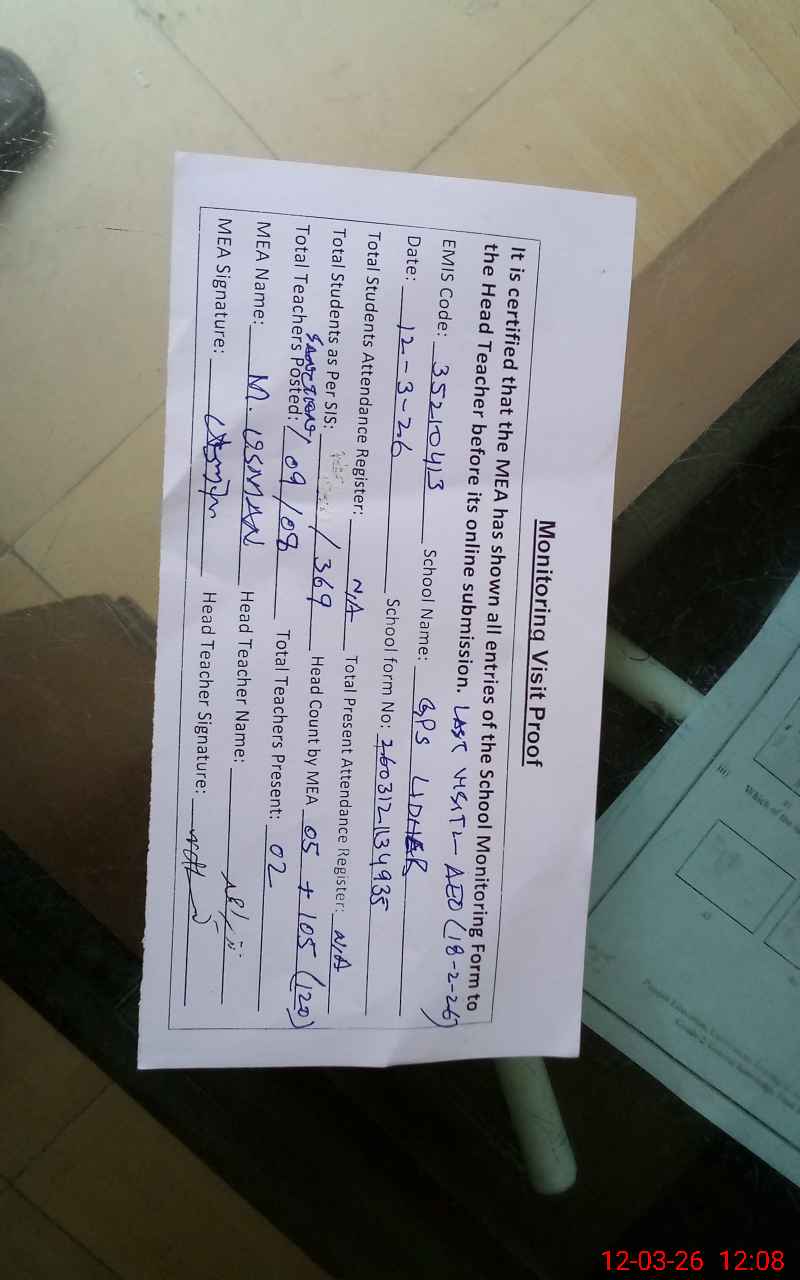 Monitoring Visit Proof
It is certified that the MEA has shown all entries of the School Monitoring Form to
the Head Teacher before its online submission. LAST VISIT - AEO (18-2-26)
EMIS Code: 35210413 School Name: GPS LIDHER
Date: 12-3-26 School form No: 2603121134935
Total Students Attendance Register: N/A Total Present Attendance Register: N/A
Total Students as Per SIS: / 369 Head Count by MEA 05 + 105 (120)
Total Teachers Posted: 09/08 Total Teachers Present: 02
MEA Name: M. USMAN Head Teacher Name:
MEA Signature: Usman Head Teacher Signature:
iii) Which of the
12-03-26 12:08